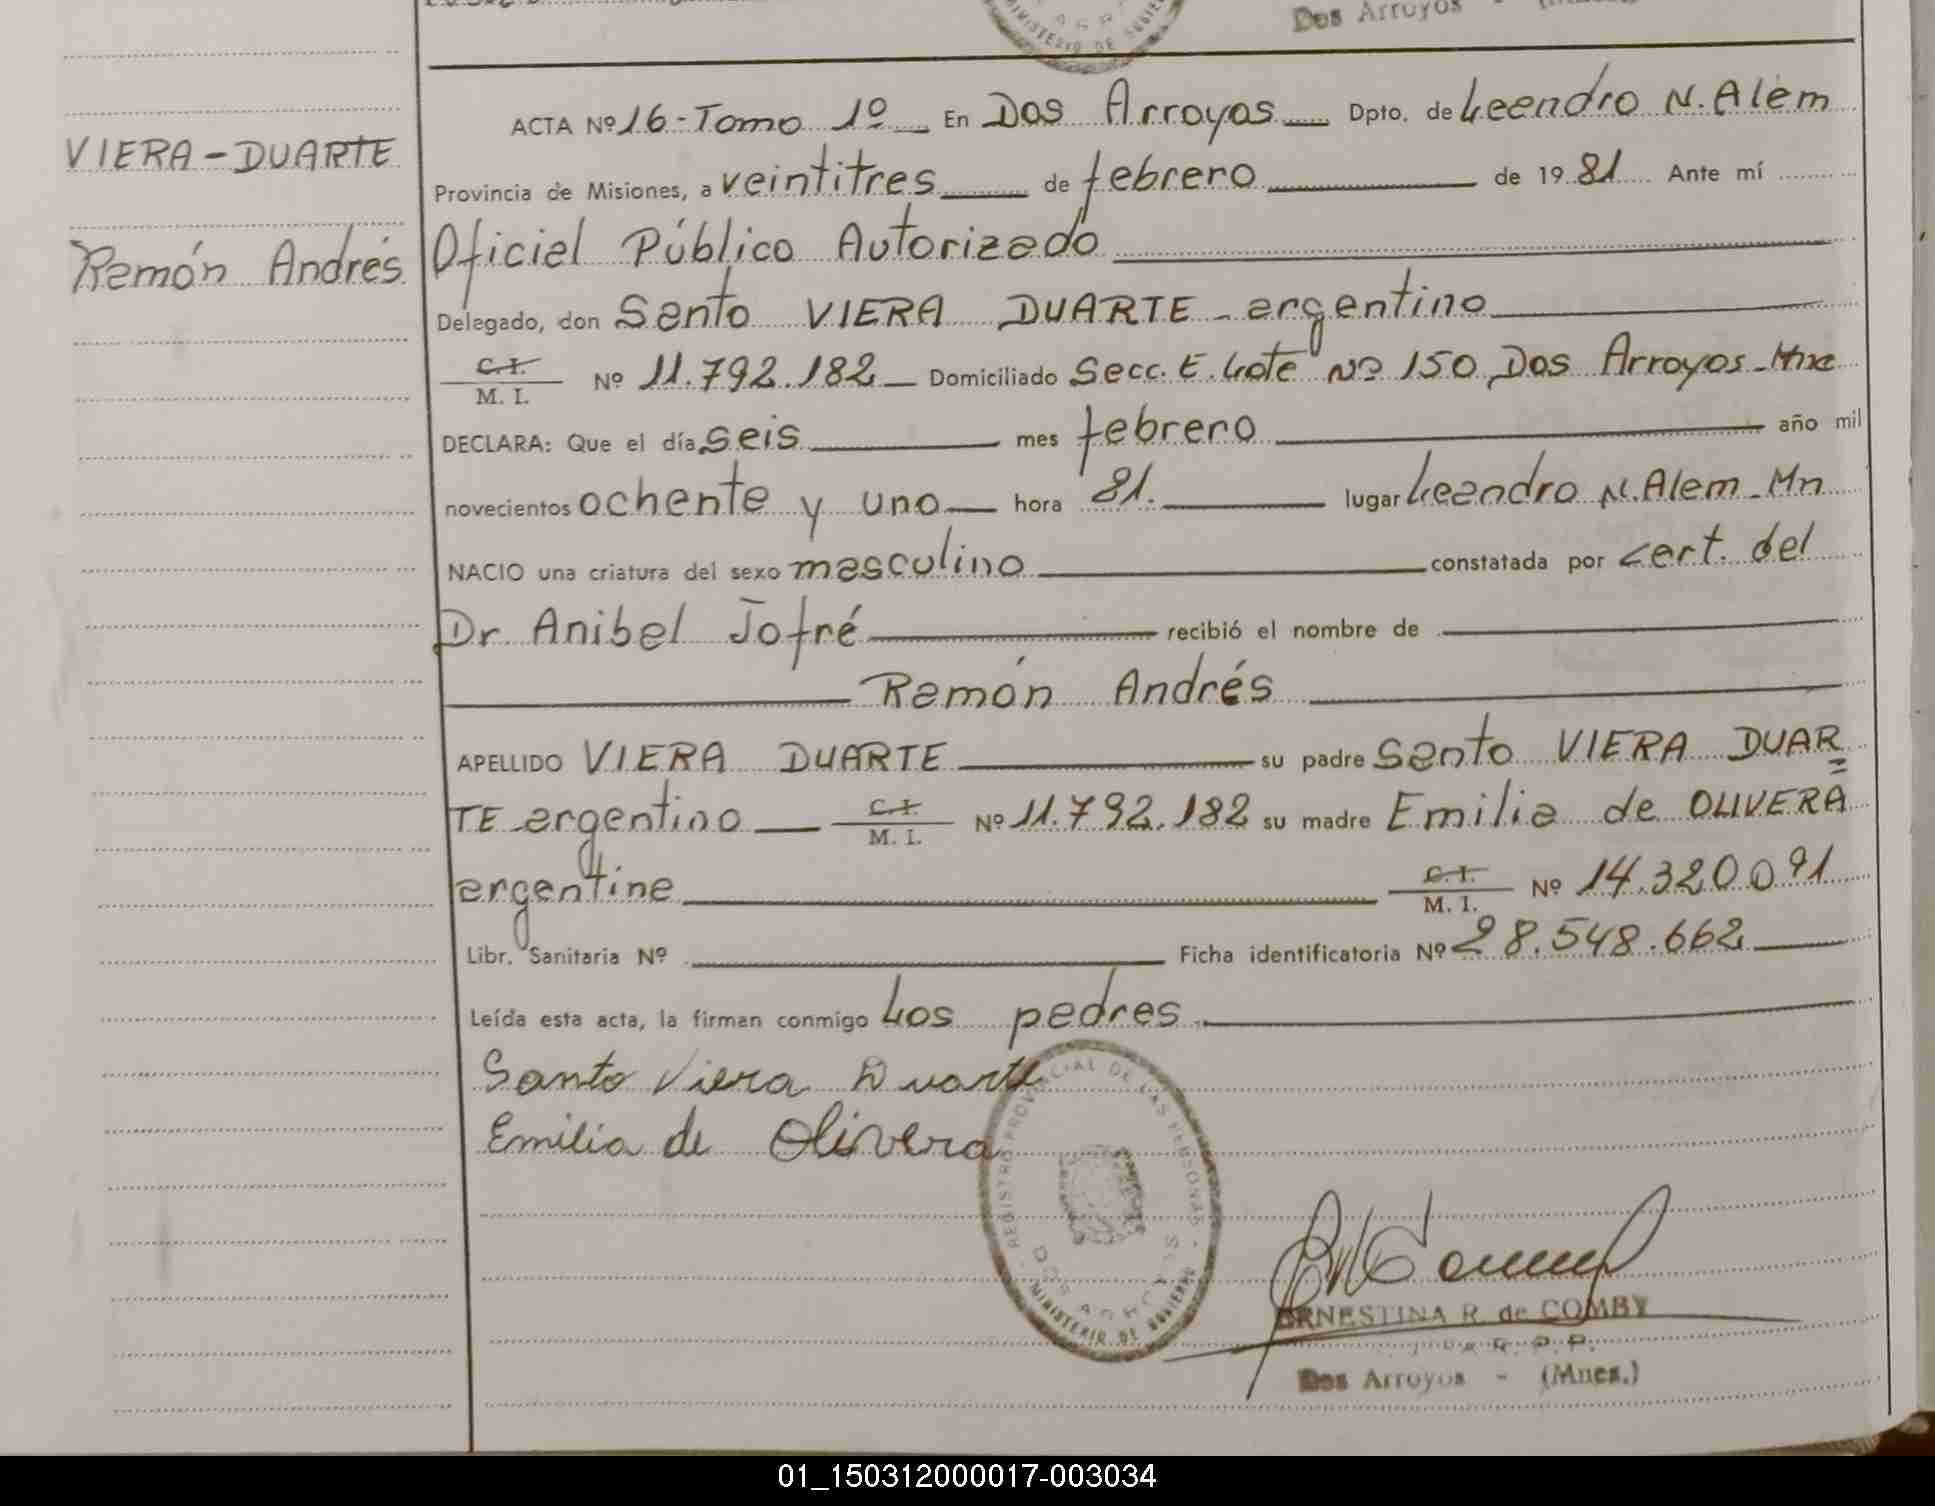 MINISTERIO DE
Dos Arroyos -
VIERA-DUARTE
Ramón Andrés
ACTA Nº 16-Tomo 1º En Dos Arroyos Dpto. de Leandro N. Alem
Provincia de Misiones, a veintitres de febrero de 1981 Ante mí
Oficial Público Autorizado
Delegado, don Santo VIERA DUARTE - argentino
C.I.
M. I. Nº 11.792.182 Domiciliado Secc. E. Lote Nº 150 Dos Arroyos-Mnes
DECLARA: Que el día seis mes febrero año mil
novecientos ochenta y uno hora 81. lugar Leandro N. Alem-Mn
NACIO una criatura del sexo masculino constatada por cert. del
Dr Anibal Jofré recibió el nombre de
Ramón Andrés
APELLIDO VIERA DUARTE su padre Santo VIERA DUAR=
TE argentino C.I. M. I. Nº 11.792.182 su madre Emilia de OLIVERA
argentina C.I. M. I. Nº 14.320091
Libr. Sanitaria Nº Ficha identificatoria Nº 28.548.662
Leída esta acta, la firman conmigo Los padres
Santo Viera Duarte
Emilia de Olivera
REGISTRO PROVINCIAL DE LAS PERSONAS
DOS ARROYOS
MINISTERIO DE GOBIERNO
ERNESTINA R. de COMBY
Dos Arroyos - (Mnes.)
01_150312000017-003034